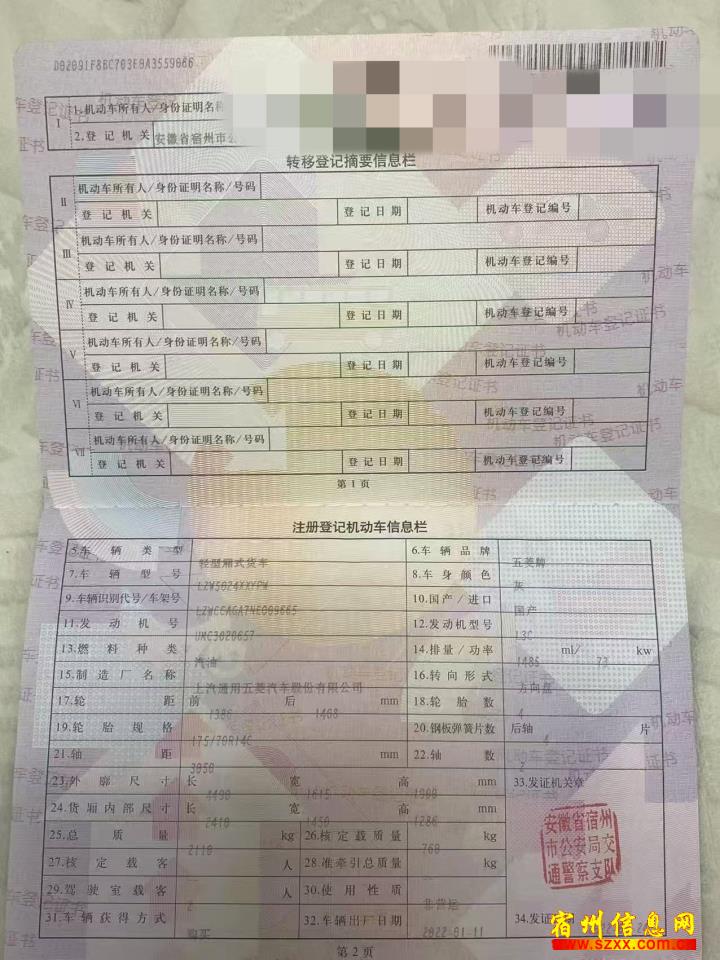 D02091F8BC703E0A3559666
I
1.机动车所有人/身份证明名称
2.登记机关 安徽省宿州市公
转移登记摘要信息栏
II 机动车所有人/身份证明名称/号码
登记机关 登记日期 机动车登记编号
III 机动车所有人/身份证明名称/号码
登记机关 登记日期 机动车登记编号
IV 机动车所有人/身份证明名称/号码
登记机关 登记日期 机动车登记编号
V 机动车所有人/身份证明名称/号码
登记机关 登记日期 机动车登记编号
VI 机动车所有人/身份证明名称/号码
登记机关 登记日期 机动车登记编号
VII 机动车所有人/身份证明名称/号码
登记机关 登记日期 机动车登记编号
第1页
注册登记机动车信息栏
5.车辆类型 轻型厢式货车 6.车辆品牌 五菱牌
7.车辆型号 LZW5024XXYPW 8.车身颜色 灰
9.车辆识别代号/车架号 10.国产/进口 国产
11.发动机号 UMC3020657 12.发动机型号 L3C
13.燃料种类 汽油 14.排量/功率 1485 ml/ 73 kw
15.制造厂名称 上汽通用五菱汽车股份有限公司 16.转向形式 方向盘
17.轮距 前 1386 后 1408 mm 18.轮胎数 4
19.轮胎规格 175/70R14C 20.钢板弹簧片数 后轴 片
21.轴距 3050 mm 22.轴数 2
23.外廓尺寸 长 4490 宽 1615 高 1900 mm 33.发证机关章
24.货厢内部尺寸 长 2410 宽 1450 高 1286 mm
25.总质量 2110 kg 26.核定载质量 760 kg
27.核定载客 人 28.准牵引总质量 kg
29.驾驶室载客 2 人 30.使用性质 非营运
31.车辆获得方式 购买 32.车辆出厂日期 2022-01-11 34.发证日期
安徽省宿州
市公安局交
通警察支队
第2页
宿州信息网
www.szxx.com.cn